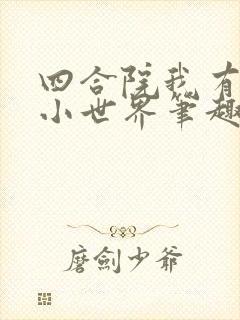 四合院我有
小世界笔趣
磨劍少爺